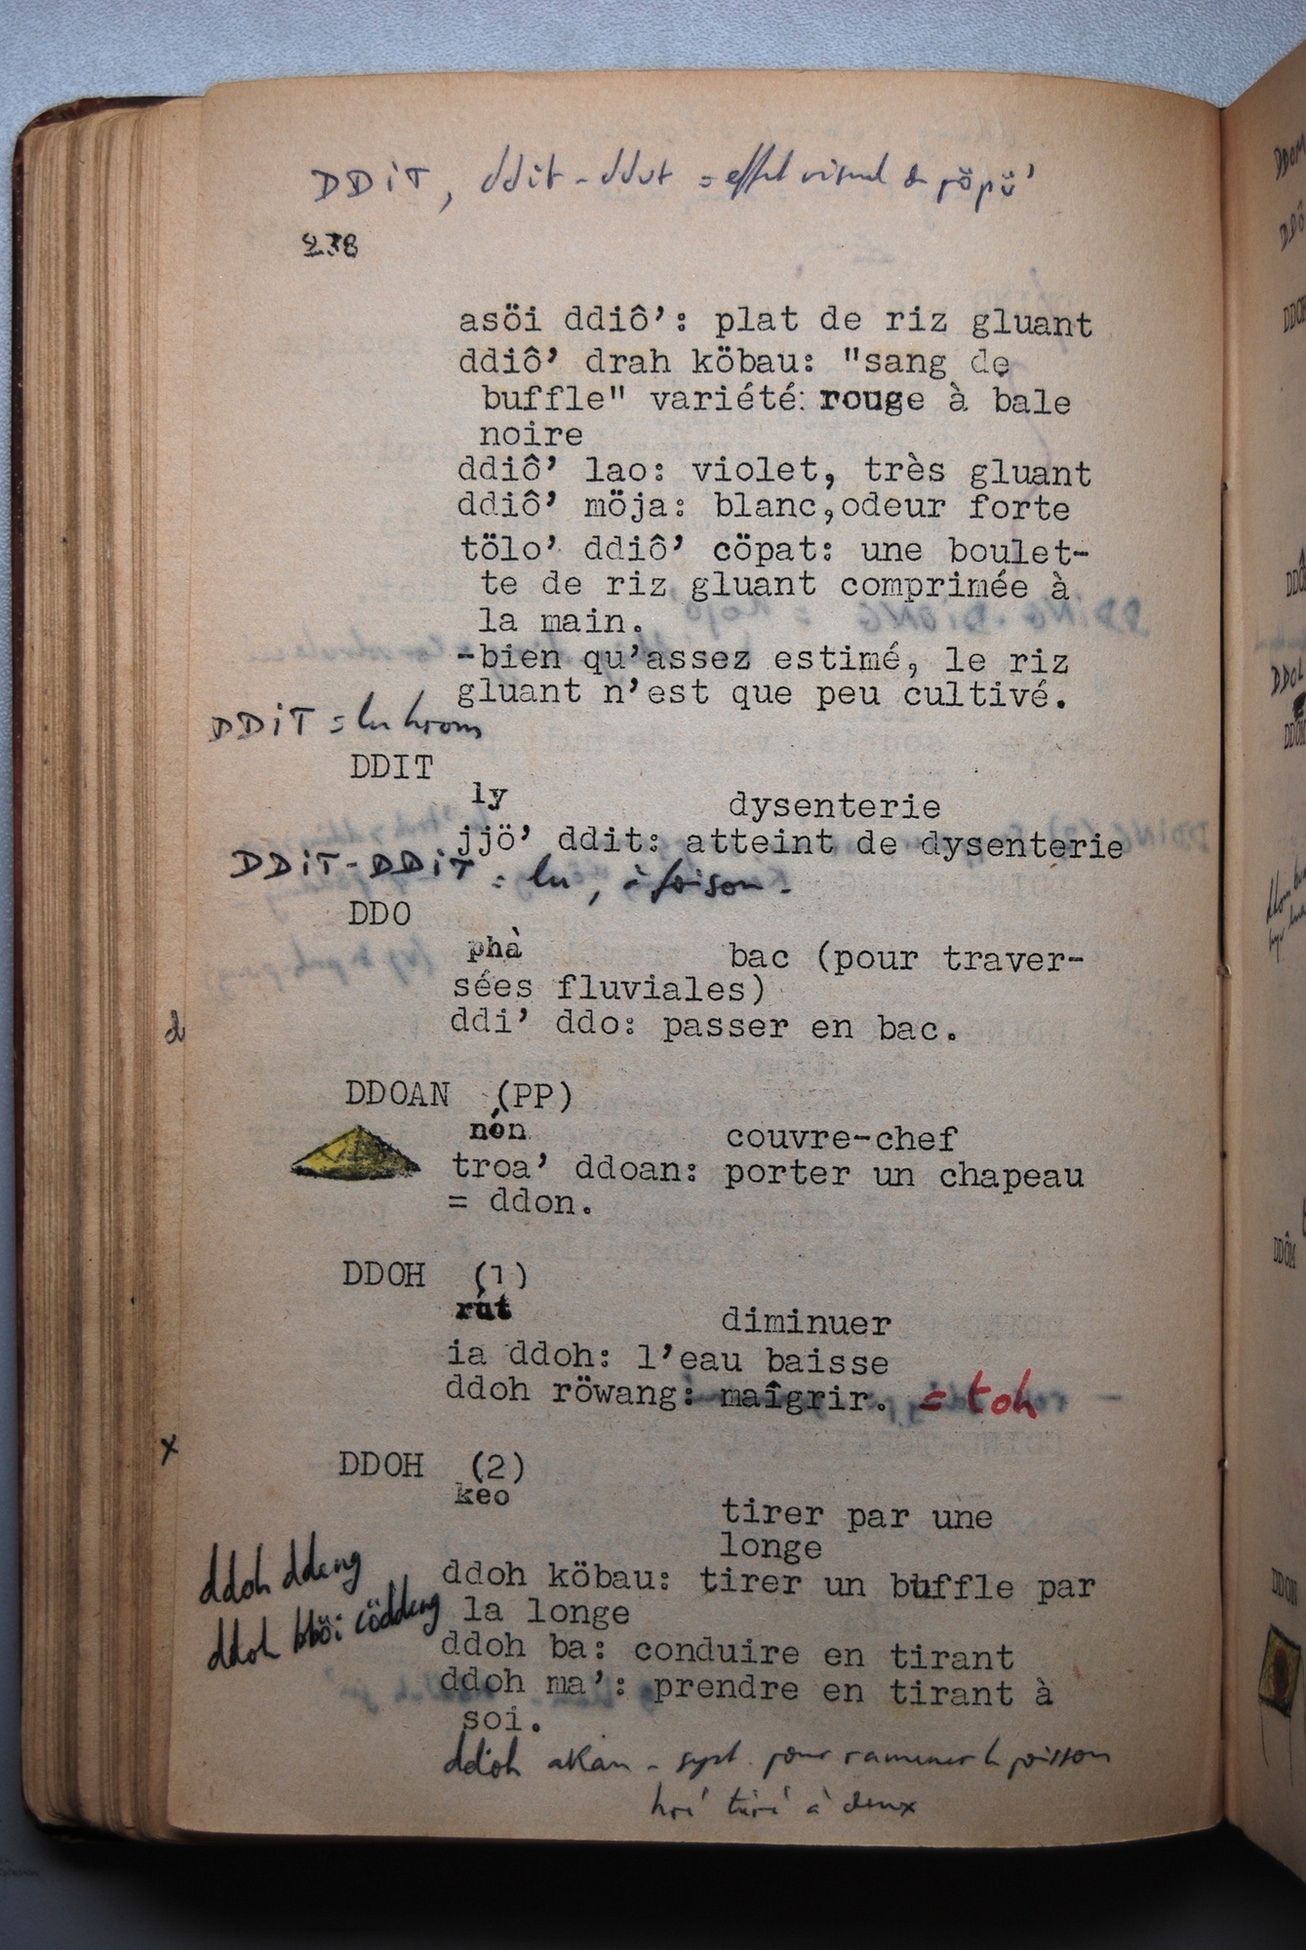 DDiT, ddit-ddut = effet visuel de pöpü'
238
asöi ddiô': plat de riz gluant
ddiô' drah köbau: "sang de
buffle" variété: rouge à bale
noire
ddiô' lao: violet, très gluant
ddiô' möja: blanc,odeur forte
tölo' ddiô' cöpat: une boulet-
te de riz gluant comprimée à
la main.
-bien qu'assez estimé, le riz
gluant n'est que peu cultivé.
DDiT = lu hrom
DDIT
ly dysenterie
jjö' ddit: atteint de dysenterie
DDiT-DDiT = lu, à foison.
DDO
phà bac (pour traver-
sées fluviales)
ddi' ddo: passer en bac.
d
DDOAN (PP)
nón couvre-chef
troa' ddoan: porter un chapeau
= ddon.
DDOH (1)
rút diminuer
ia ddoh: l'eau baisse
ddoh röwang: maîgrir. = toh
x
DDOH (2)
keo tirer par une
longe
ddoh ddeng
ddoh köbau: tirer un buffle par
la longe
ddoh bböi cöddeng
ddoh ba: conduire en tirant
ddoh ma': prendre en tirant à
soi.
ddoh akan - syst. pour ramener le poisson
tiré à deux